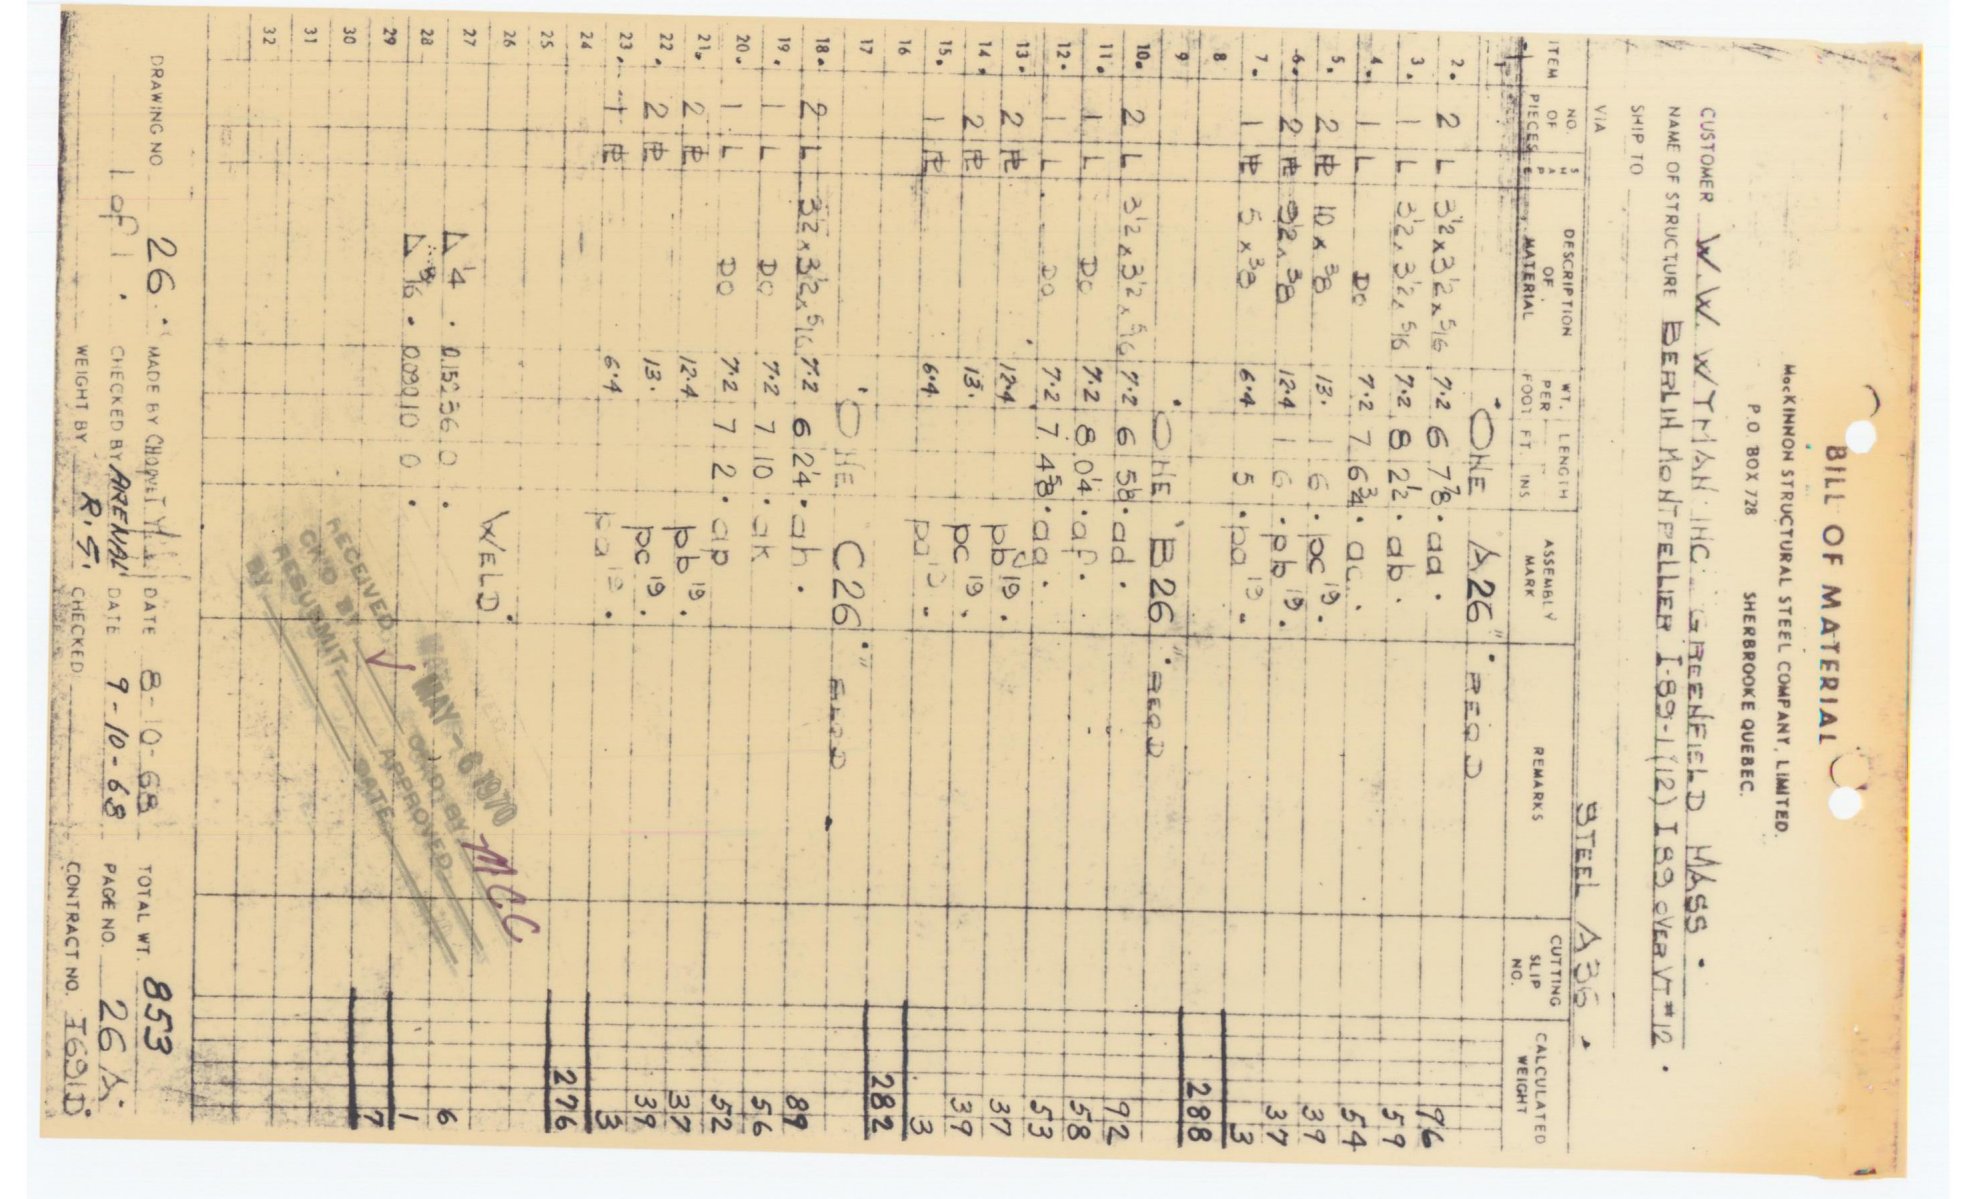 BILL OF MATERIAL
MacKINNON STRUCTURAL STEEL COMPANY, LIMITED.
P.O. BOX 728 SHERBROOKE QUEBEC.
CUSTOMER W.W. WYMAN INC. GREENFIELD MASS.
NAME OF STRUCTURE BERLIN MONTPELLIER I-89-1(12) I89 OVER VT #12.
SHIP TO
VIA STEEL A36.
ITEM NO. OF PIECES SHAPE DESCRIPTION OF MATERIAL WT. PER FOOT LENGTH FT INS ASSEMBLY MARK REMARKS CUTTING SLIP NO. CALCULATED WEIGHT
1. "ONE A26". REQD
2. 2 L 3½x3½x5/16 7.2 6 7⅞. aa. 96
3. 1 L 3½x3½x5/16 7.2 8 2½. ab. 59
4. 1 L DO 7.2 7 6¾. ac. 54
5. 2 PL 10x⅜ 13. 1 6. pc19. 39
6. 2 PL 9½x⅜ 12.4 1 6. pb19. 37
7. 1 PL 5x⅜ 6.4 5. pa19. 3
8 288
9 "ONE B26". REQD
10. 2 L 3½x3½x5/16 7.2 6 5⅛. ad. 92
11. 1 L DO 7.2 8 0¼. af. 58
12. 1 L DO 7.2 7 4⅝. ag. 53
13. 2 PL 12.4 pb19. 37
14. 2 PL 13. pc19. 39
15. 1 PL 6.4 pa19. 3
16 282
17 "ONE C26". REQD
18. 2 L 3½x3½x5/16 7.2 6 2¼. ah. 89
19. 1 L DO 7.2 7 10. ak 56
20. 1 L DO 7.2 7 2. ap 52
21. 2 PL 12.4 pb19. 37
22. 2 PL 13. pc19. 39
23. 1 PL 6.4 pa19. 3
24 276
25
26 WELD.
27 ¼. 0.15236 0. 6
28 3/16. 0.09010 0. 1
29 7
30
31
32
MAY -6 1970
RECEIVED
CHK'D BY CHK'D. BY MCC
RESUBMIT APPROVED
BY DATE
DRAWING NO. 26. MADE BY DATE 8-10-68 TOTAL WT. 853
1 of 1. CHECKED BY ARENAL DATE 9-10-68 PAGE NO. 26A.
WEIGHT BY R.S. CHECKED CONTRACT NO. I691D.